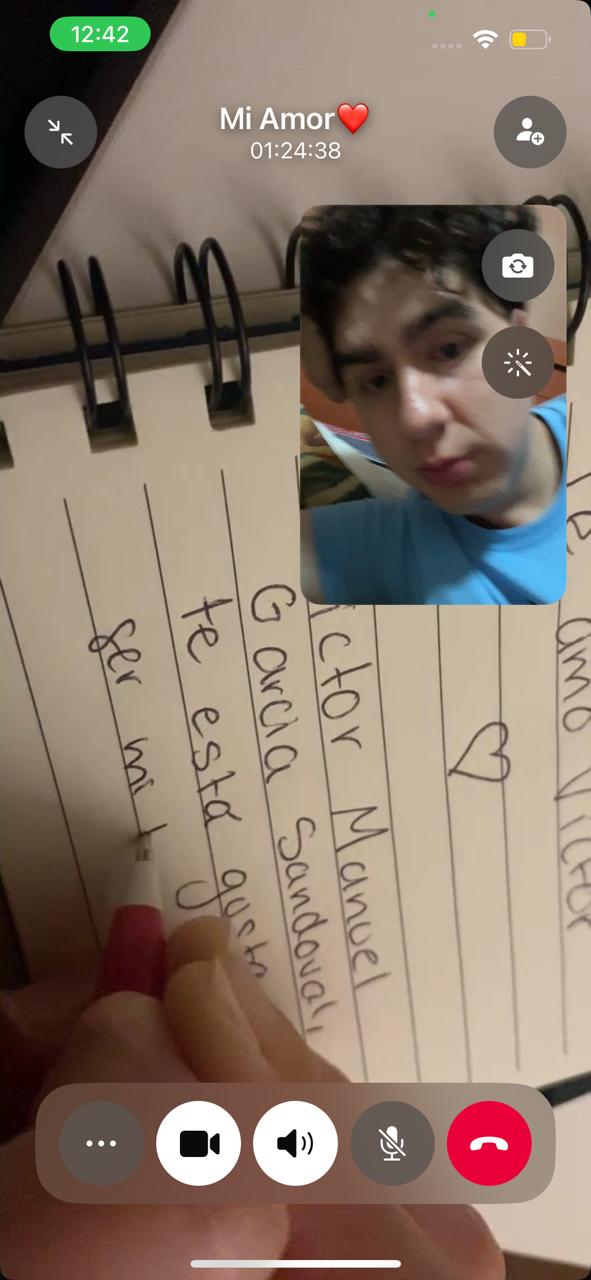 12:42
Mi Amor❤️
01:24:38
Te amo Victor
ictor Manuel
Garcia Sandoval,
te está
ser mi